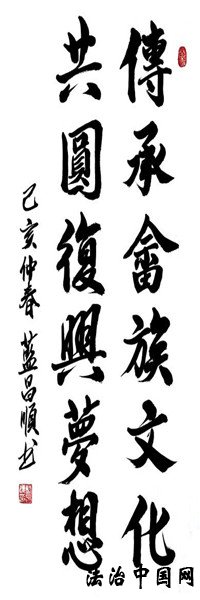 傳承畲族文化
共圓復興夢想
己亥仲春 藍昌順书
法治中国网